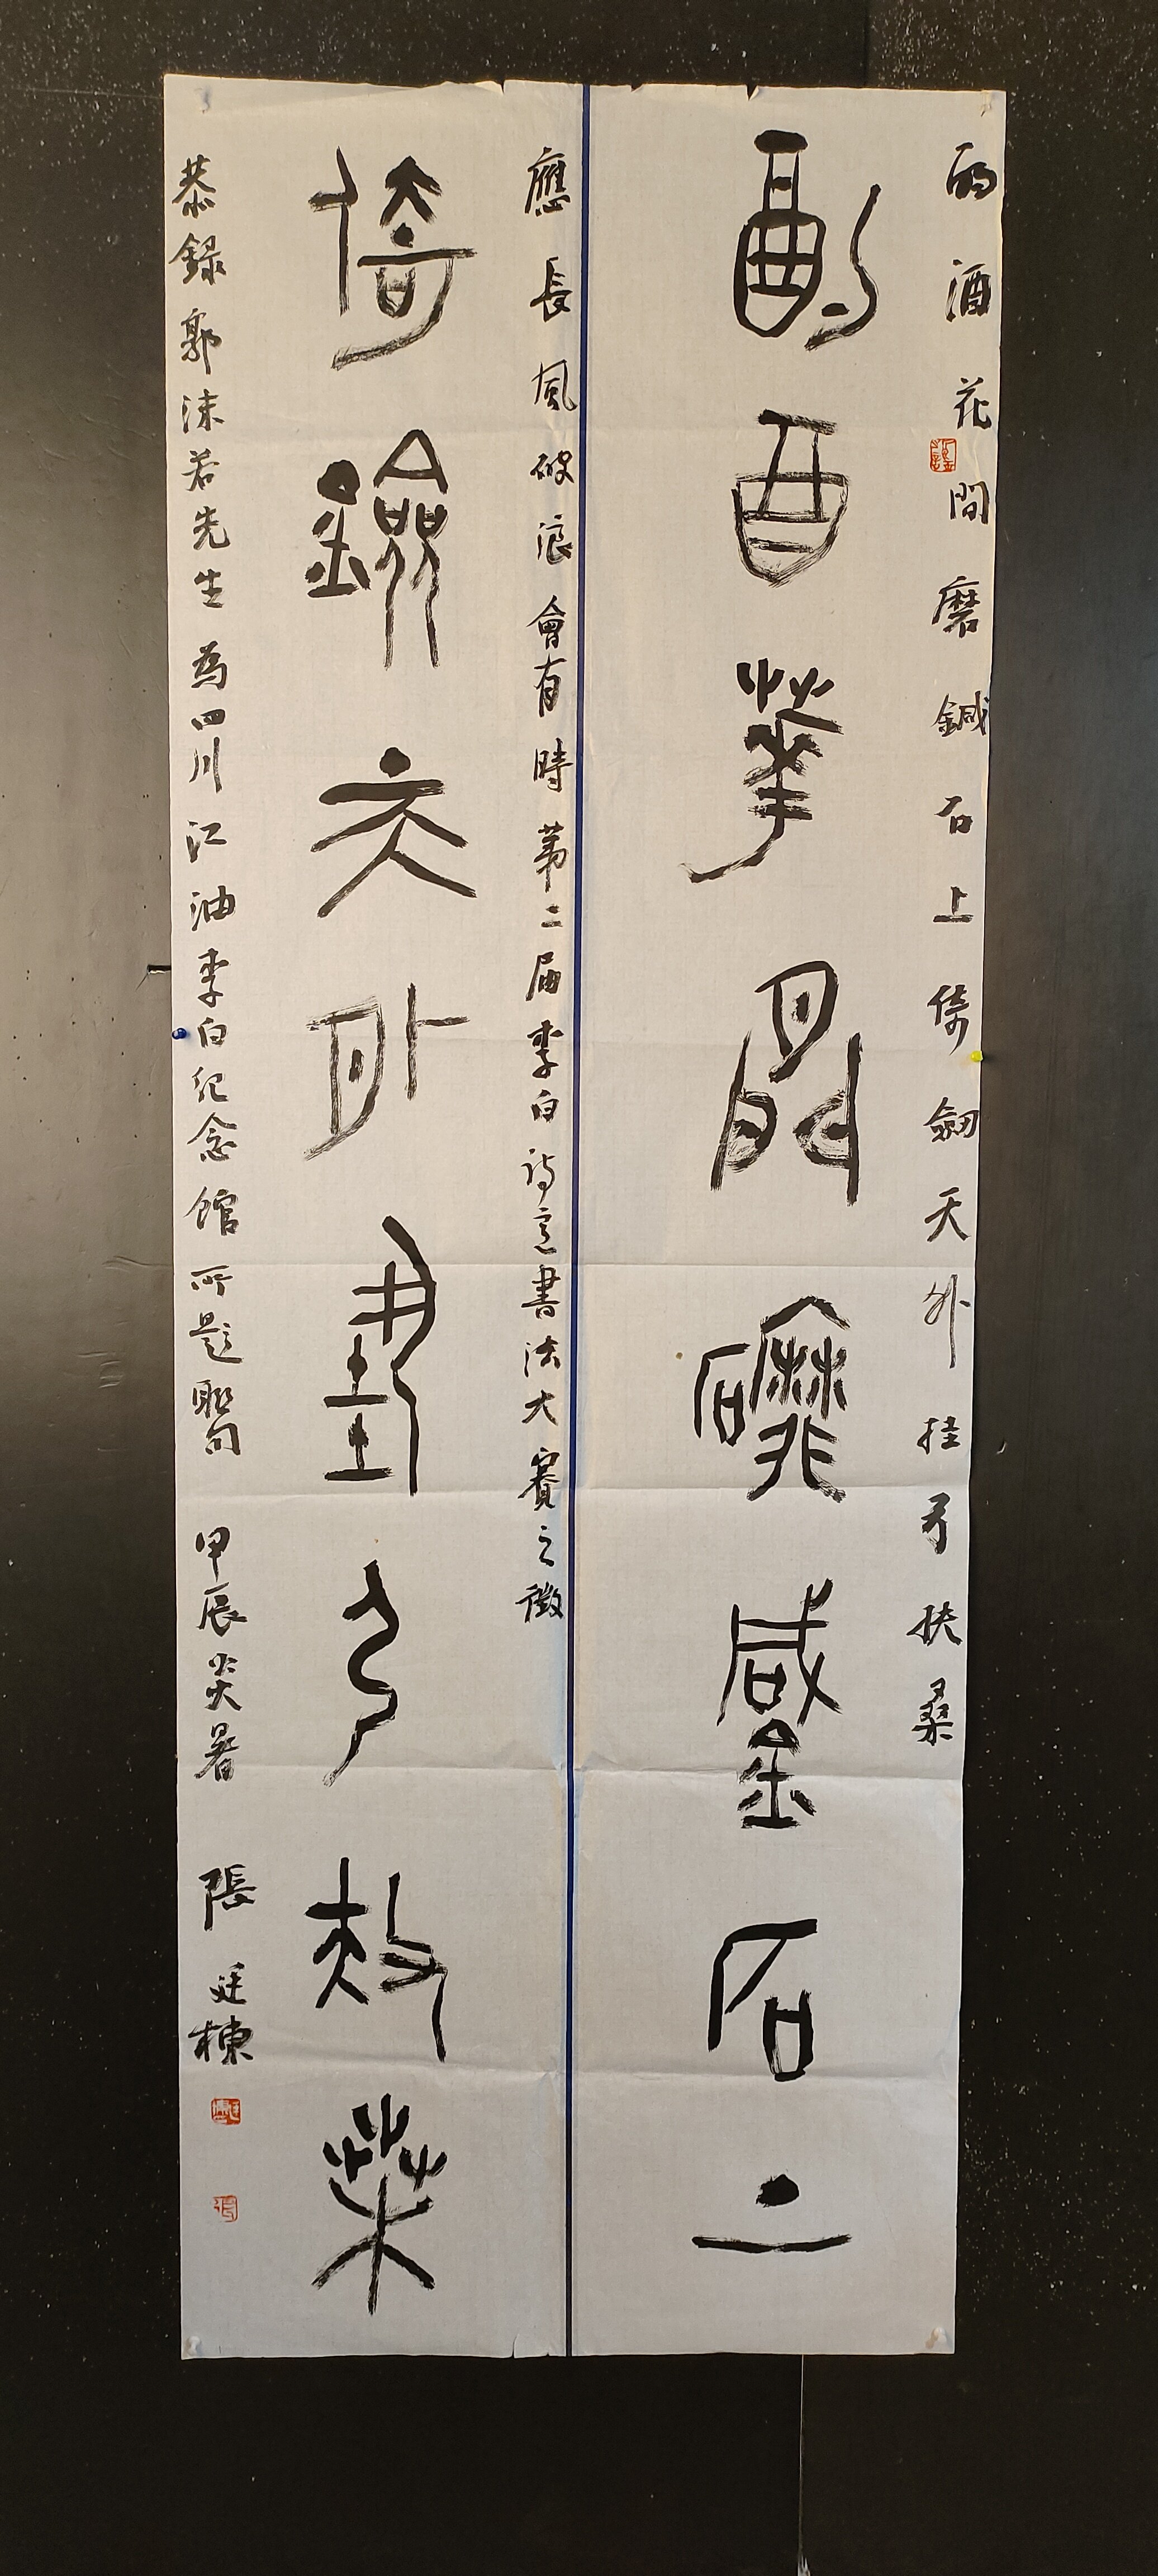 酌酒花間磨鍼石上倚劒天外挂弓扶桑
酌酒華閒磨鍼石上
應長風破浪會有時第二届李白詩意書法大賽之徵
倚劒天外挂弓扶桑
恭錄郭沫若先生為四川江油李白紀念館所題聯句甲辰炎暑張廷棟